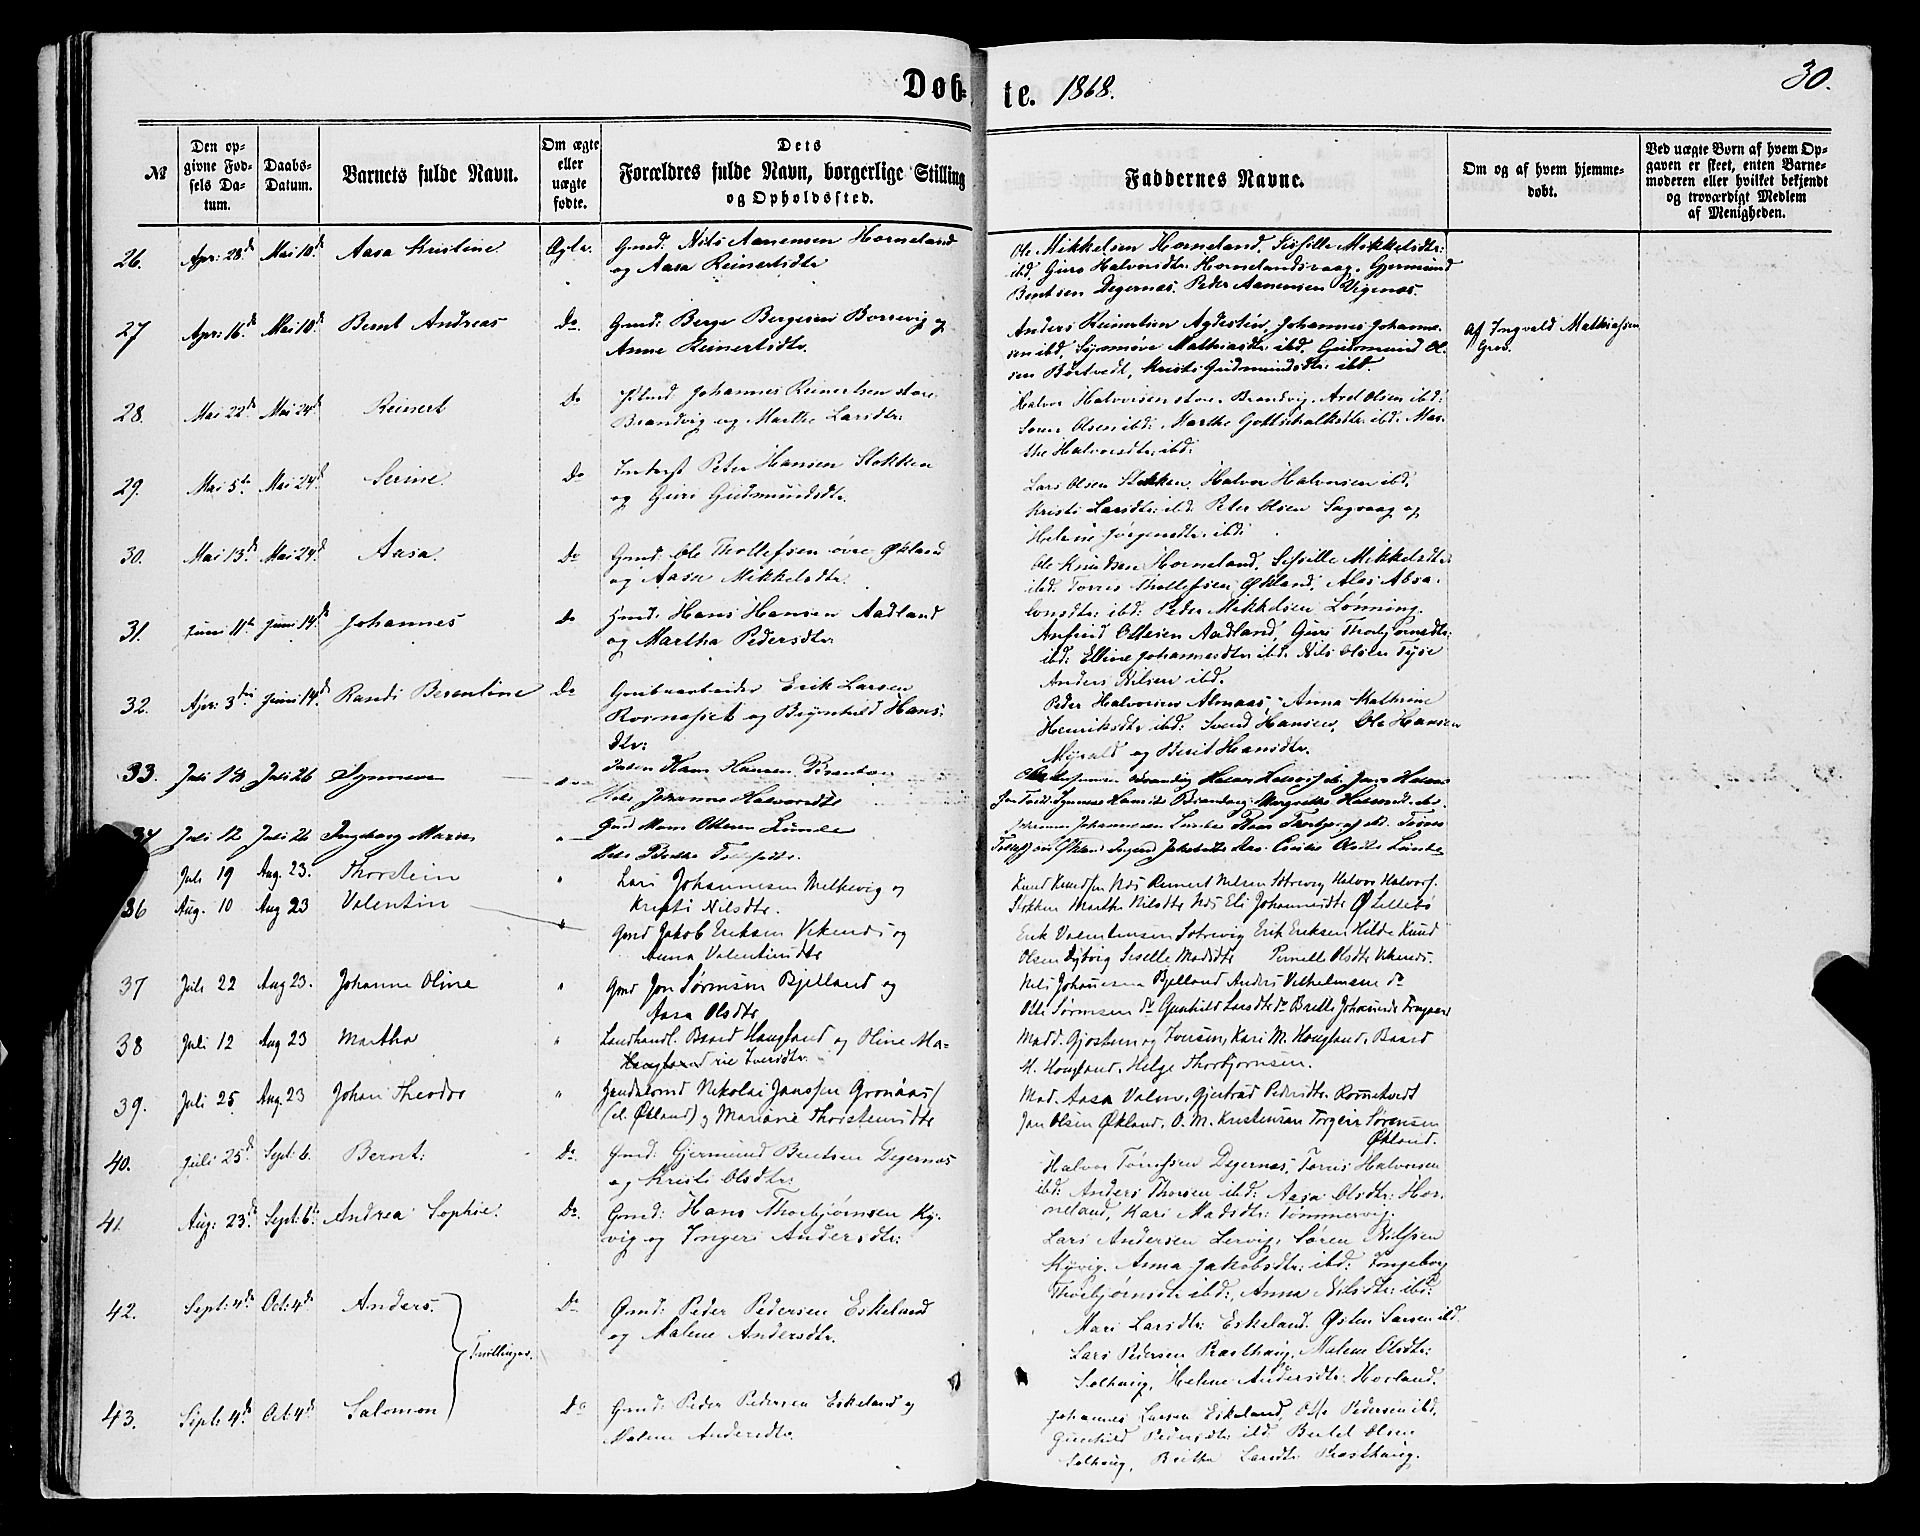 Døbte. 1868. 30.
№
Den opgivne Fødsels Datum.
Daabs-Datum.
Barnets fulde Navn.
Om ægte eller uægte fødte.
Dets Forældres fulde Navn, borgerlige Stilling og Opholdssted.
Faddernes Navne.
Om og af hvem hjemmedøbt.
Ved uægte Børn af hvem Opgaven er skeet, enten Barnemoderen eller hvilket bekjendt og troværdigt Medlem af Menigheden.
26. Apr: 28de Mai 10de Aasa Kristine Ægte. Gmd: Nils Aanensen Horneland
og Aasa Reinertsdtr
Ole Mikkelsen Horneland, Sissille Mikkelsdtr:
ibd, Guro Halvorsdtr: Hornelandsvaag, Gjermund
Bentsen Degernæs. Peder Aanensen Vigenæs.
27 Apr: 16de Mai 10de Bernt Andreas Do. Gmd: Berge Bergesen Borrevig og
Anne Reinertsdtr.
Anders Reinertsen Agdestein, Johannes Johanne-
sen ibd, Synnøve Mathiasdtr: ibd, Gudmund Ol-
sen Børtvedt, Kristi Gudmundsdtr: ibd.
Af Ingvald Mathiassen
Grov.
28. Mai 22de Mai 24de Reinert Do Johannes Reinertsen store
Brandvig og Marthe Larsdtr:
Halvor Halvorsen store Brandvig. Axel Olsen ibd:
Soren Olsen ibd: Marthe Gottschalksdtr: ibd: Mar-
the Halvorsdtr: ibd:
29. Mai 5te Mai 24de Serine. Do Inderst Peter Hansen Stokken
og Guri Gudmundsdtr.
Lars Olsen Stokken. Halvor Halvorsen ibd.
Kristi Larsdtr: ibd: Peter Olsen Sagvaag og
Helene Jørgensdtr. ibd:
30. Mai 13de Mai 24de Aasa. Do Gmd: Ole Thollefsen øvre Økland
og Aasa Mikkelsdtr.
Ole Knudsen Horneland, Sissille Mikkelsdtr
ibd. Torris Thollefsen Økland, Ales Absa-
lonsdtr: ibd: Peder Mikkelsen Lønning.
31. Juni 11te Juni 14de Johannes Do Gmd: Hans Hansen Aadland
og Martha Pedersdtr.
Anfind Ottesen Aadland, Guri Thorbjørnsdtr:
ibd: Elline Johannesdtr ibd. Nils Olsen Tyse
Anders Nilsen ibd.
32. Apr: 3die Juni 14de Randi Berentine Do Grubearbeider Erik Larsen
Rosnæsiet og Brynhild Hans-
dtr:
Peder Halvorsen Almaas, Anna Kathrine
Henriksdtr ibd: Svend Hansen, Ole Hansen
og Berit Hansdtr.
33. Juli 14 Juli 26 Hans Hansen
Johanne Halvorsdtr
34 Juli 12 Juli 26 Ingeborg Marie Gmd Mons Ottesen Lunde
Johannes Johannesen Lunde
Juli 19 Aug. 23. Thorstein Lars Johannesen Melkevig og
Kristi Nilsdtr.
Knud Knudsen Næs Reinert Nilsen Sætrevig Halvor Halvors.
Stokken Marthe Nilsdtr Næs Eli Johannesdtr Ø Lillebø
36 Aug. 10 Aug 23 Valentin Gmd Jakob Eriksen Vikenes og
Anna Valentinsdtr
Erik Valentinsen Sætrevig Erik Eriksen Hilde Knud
Olsen Dybvig Seselle Madsdtr Pernelle Olsdtr Vikenes.
37 Juli 22 Aug 23. Johanne Oline Gmd Jon Sørensen Bjelland og
Aasa Olsdtr
Nils Johannesen Bjelland Anders Vilhelmsen do
Otte Sørensen do Gunhild Larsdtr do Brette Johannesdtr
38 Juli 12 Aug 23 Martha Landhandl. Baard Haugland og Oline Ma-
rie Iversdtr.
Madd. Gjøsteen og Iversen, Kari M. Haugland, Baard
H. Haugland, Helge Thorbjørnsen.
39. Juli 25 Aug. 23 Johan Theodor Nikolai Janssen Gronaas
(el. Økland) og Mariane Thorsteinsdtr
Mad. Aasa Valen, Gjertrud Pedersdtr Rømetvedt
Jan Olsen Økland, O. M. Kristensen Torgeir Sørensen
Økland.
40. Juli 25de Sept: 6. Bernt: Do. Gmd: Gjermund Bentsen Degernæs
og Kristi Olsdtr:
Halvor Tørressen Degernæs, Torris Halvorsen
ibd: Anders Thorsen ibd: Aasa Olsdtr: Hor-
neland, Kari Madsdtr: Tømmervig.
41. Aug: 23de Sept: 6te Andrea Sophie. Do. Gmd: Hans Thorbjørnsen Ky-
vig og Ingeri Andersdtr:
Lars Andersen Lervig, Søren Nilssen
Kyvig, Anna Jakobsdtr: ibd: Ingeborg
Thorbjørnsdtr ibd:, Anna Nilsdtr: ibd:
42. Sept: 4de Oct: 4de Anders. Do Gmd: Peder Pedersen Eskeland
og Malene Andersdtr.
Tvillinger.
Mari Larsdtr: Eskeland. Østen Larsen ibd.
Lars Pedersen Prasthaug, Malene Olsdtr:
Solhaug, Helene Andersdtr: Hovland.
43. Sept: 4de Oct 4de Salomon Do Gmd: Peder Pedersen Eskeland og
Malene Andersdtr.
Johannes Larsen Eskeland, Otto Pedersen ibd.
Gunhild Pedersdtr: ibd Bertel Olsen
Solhaug, Brithe Larsdtr Prasthaug.